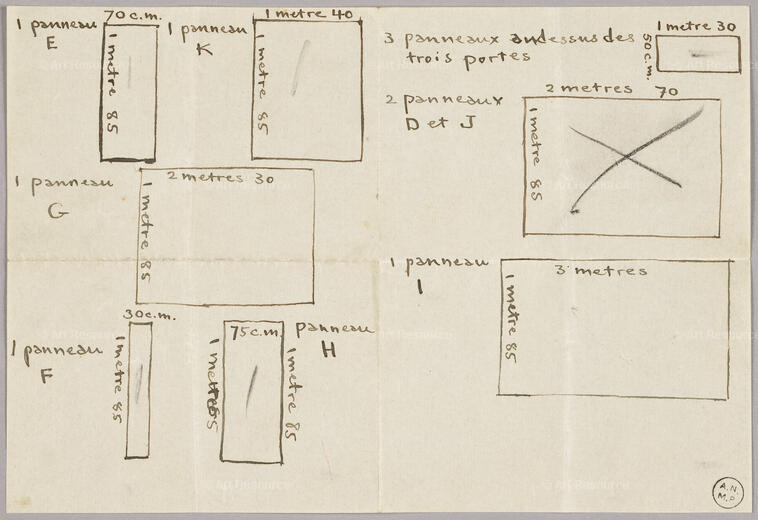 1 panneau
E
70 c.m.
1 metre 85
1 panneau
K
1 metre 40
1 metre 85
3 panneaux au dessus des
trois portes
1 metre 30
50 c.m.
2 panneaux
D et J
2 metres 70
1 metre 85
1 panneau
G
2 metres 30
1 metre 85
1 panneau
I
3 metres
1 metre 85
1 panneau
F
30 c.m.
1 metre 85
75 c.m.
panneau
H
1 metre 85
A.N.
M.P.